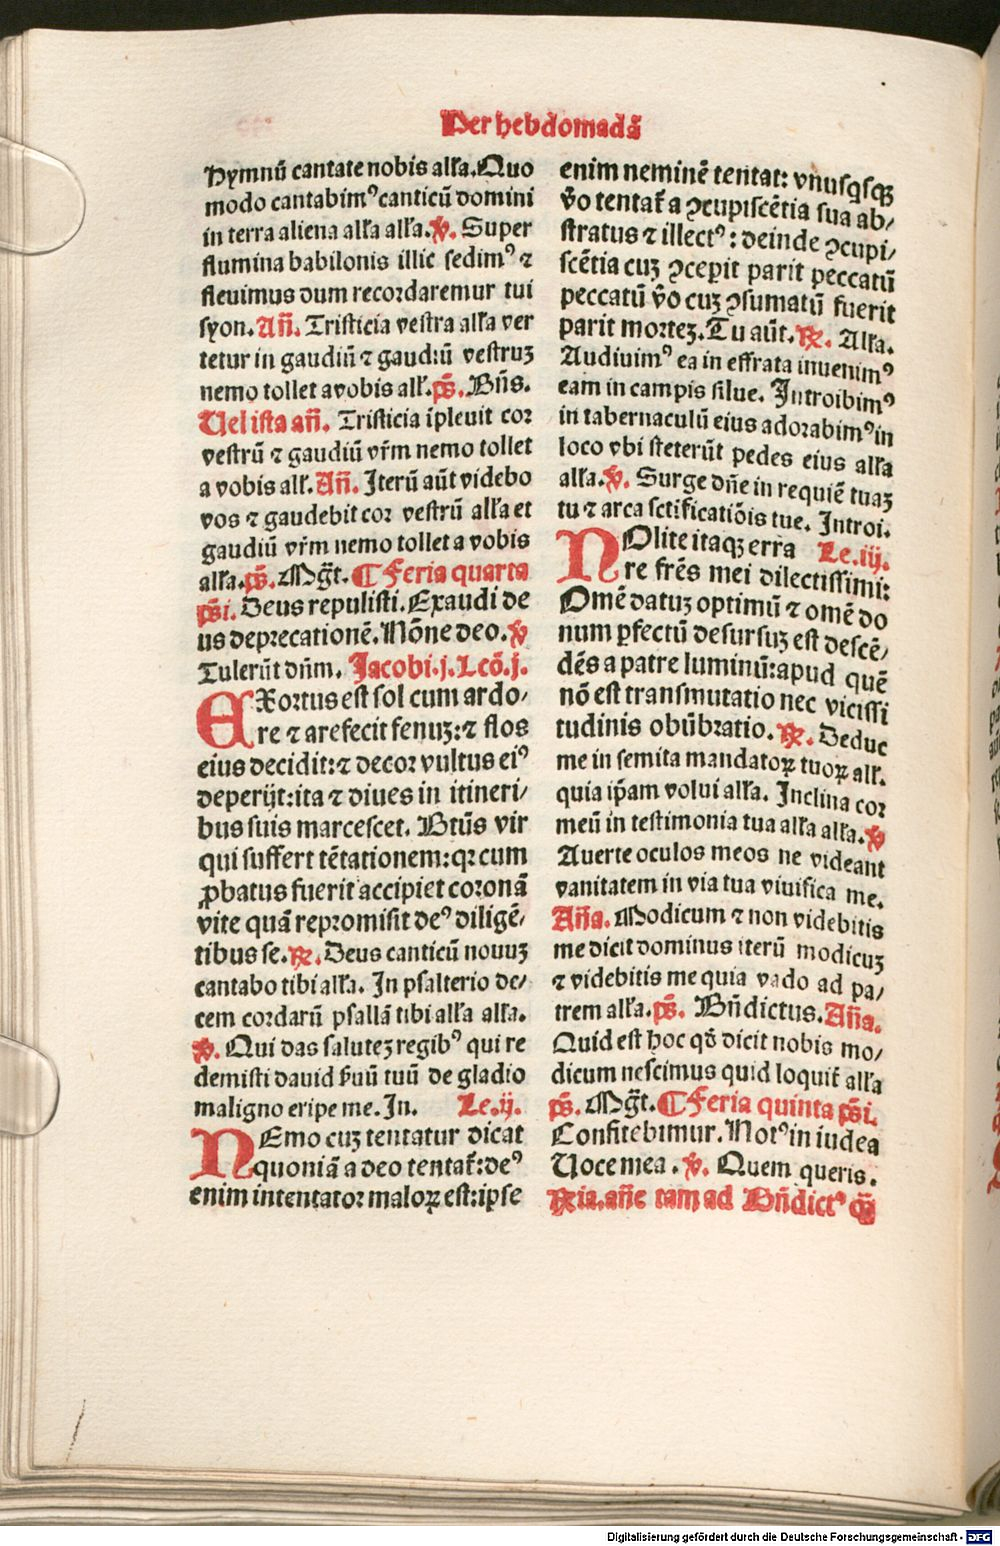 Per hebdomadā
hymnū cantate nobis alľa. Quo
modo cantabimꝰ canticū domini
in terra aliena alľa alľa. ℣. Super
flumina babilonis illic sedimꝰ ⁊
fleuimus dum recordaremur tui
syon. Añ. Tristicia vestra alľa ver
tetur in gaudiū ⁊ gaudiū vestruꝫ
nemo tollet a vobis alľ. pš. Bñs.
Uel ista añ. Tristicia īpleuit cor
vestrū ⁊ gaudiū vřm nemo tollet
a vobis alľ. Añ. Iterū aūt videbo
vos ⁊ gaudebit cor vestrū alľa et
gaudiū vřm nemo tollet a vobis
alľa. pš. Mg̃t. ¶ Feria quarta
pši. Deus repulisti. Exaudi de
us deprecationē. Nōne deo. ℣
Tulerūt dñm. Jacobi .j. Lcō. j.
EXortus est sol cum ardo⸗
re ⁊ arefecit fenuꝫ: ⁊ flos
eius decidit: ⁊ decor vultus eiꝰ
deperijt: ita ⁊ diues in itineri⸗
bus suis marcescet. Btūs vir
qui suffert tētationem: qꝛ cum
ꝓbatus fuerit accipiet coronā
vite quā repromisit deꝰ diligē⸗
tibus se. ℟. Deus canticū nouuꝫ
cantabo tibi alľa. In psalterio de⸗
cem cordarū psallā tibi alľa alľa.
℣. Qui das saluteꝫ regibꝰ qui re
demisti dauid ẜuū tuū de gladio
maligno eripe me. In. Le. ij.
NEmo cuꝫ tentatur dicat
quoniā a deo tentat̄: deꝰ
enim intentator maloꝝ est: ipse
enim neminē tentat: vnusqsqꝫ
ṽo tentat̄ a ꝯcupiscētia sua ab⸗
stratus ⁊ illectꝰ: deinde ꝯcupi⸗
scētia cuꝫ ꝯceperit parit peccatū
peccatū ṽo cuꝫ ꝯsumatū fuerit
parit morteꝫ. Tu aūt. ℟. Alľa.
Audiuimꝰ ea in effrata inuenimꝰ
eam in campis silue. Introibimꝰ
in tabernaculū eius adorabimꝰ in
loco vbi steterūt pedes eius alľa
alľa. ℣. Surge dñe in requiē tuaꝫ
tu ⁊ arca sctificatiōis tue. Introi.
NOlite itaqꝫ erra Le. iij.
re frēs mei dilectissimi:
Omē datuꝫ optimū ⁊ omē do
num ꝑfectū desursuꝫ est descē⸗
dēs a patre luminū: apud quē
nō est transmutatio nec vicissi
tudinis obūbratio. ℟. Deduc
me in semita mandatoꝝ tuoꝝ alľ.
quia ip̄am volui alľa. Inclina cor
meū in testimonia tua alľa alľa. ℣
Auerte oculos meos ne videant
vanitatem in via tua viuifica me.
Aña. Modicum ⁊ non videbitis
me dicit dominus iterū modicuꝫ
⁊ videbitis me quia vado ad pa⸗
trem alľa. pš. Bñdictus. Aña.
Quid est hoc qđ dicit nobis mo⸗
dicum nescimus quid loquit̄ alľa
pš. Mg̃t. ¶ Feria quinta pši.
Confitebimur. Notꝰ in iudea
Uoce mea. ℣. Quem queris.
℟ia. añe tam ad Bñdictꝰ q̄ꝫ
Digitalisierung gefördert durch die Deutsche Forschungsgemeinschaft - DFG